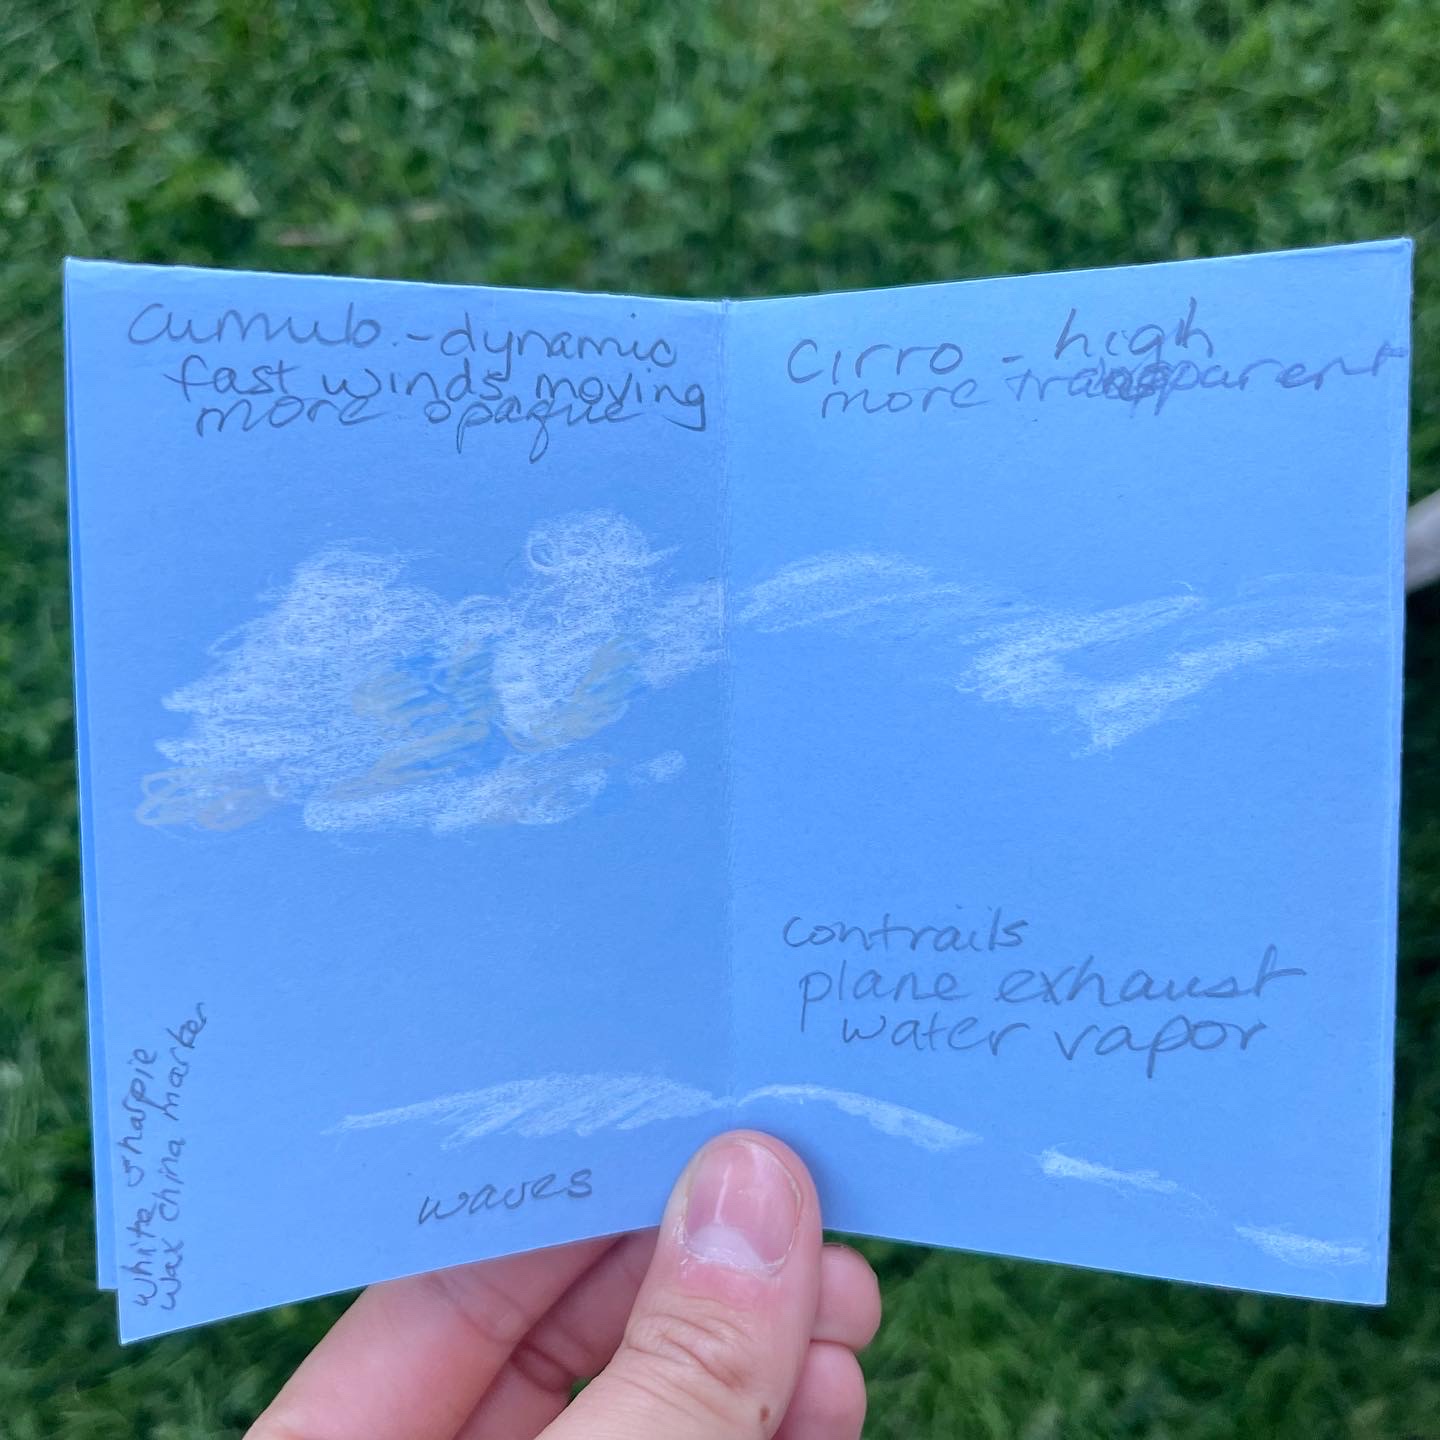 cumulo - dynamic
fast winds moving
more opaque
cirro - high
more transparent
contrails
plane exhaust
water vapor
waves
white sharpie
wax china marker